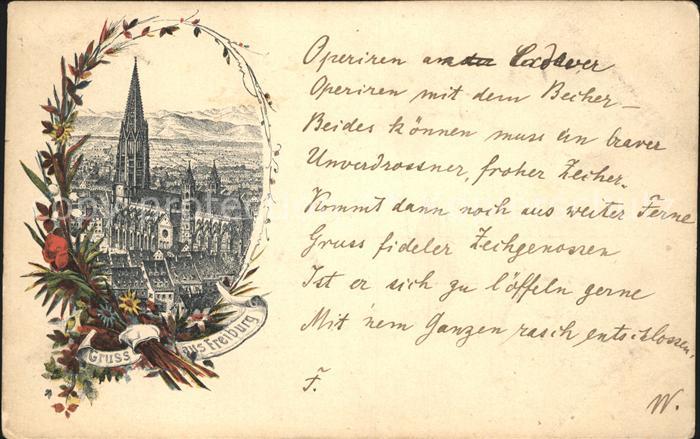 Operiren am Cadaver
Operiren mit dem Becher –
Beides können muss ein braver
Unverdrossner, froher Zecher.
Kommt dann noch aus weiter Ferne
Gruss fideler Zechgenossen
Ist er sich zu löffeln gerne
Mit 'nem Ganzen rasch entschlossen,
F.
W.
Gruss aus Freiburg